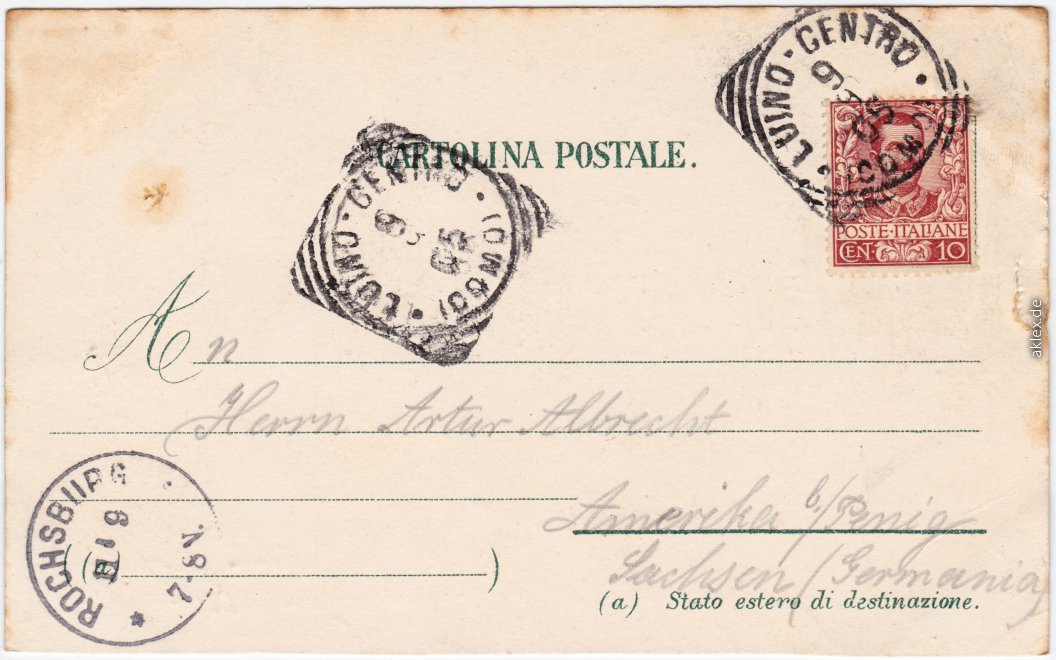 LUINO-CENTRO • (COMO) •
9 05
CARTOLINA POSTALE.
LUINO-CENTRO • (COMO) •
9 05
POSTE·ITALIANE
CEN·10
An
Herrn Artur Albrecht
Amerika b/Penig
Sachsen (Germania)
ROCHSBURG
7-8V.
(a
)
(a) Stato estero di destinazione.
aklex.de